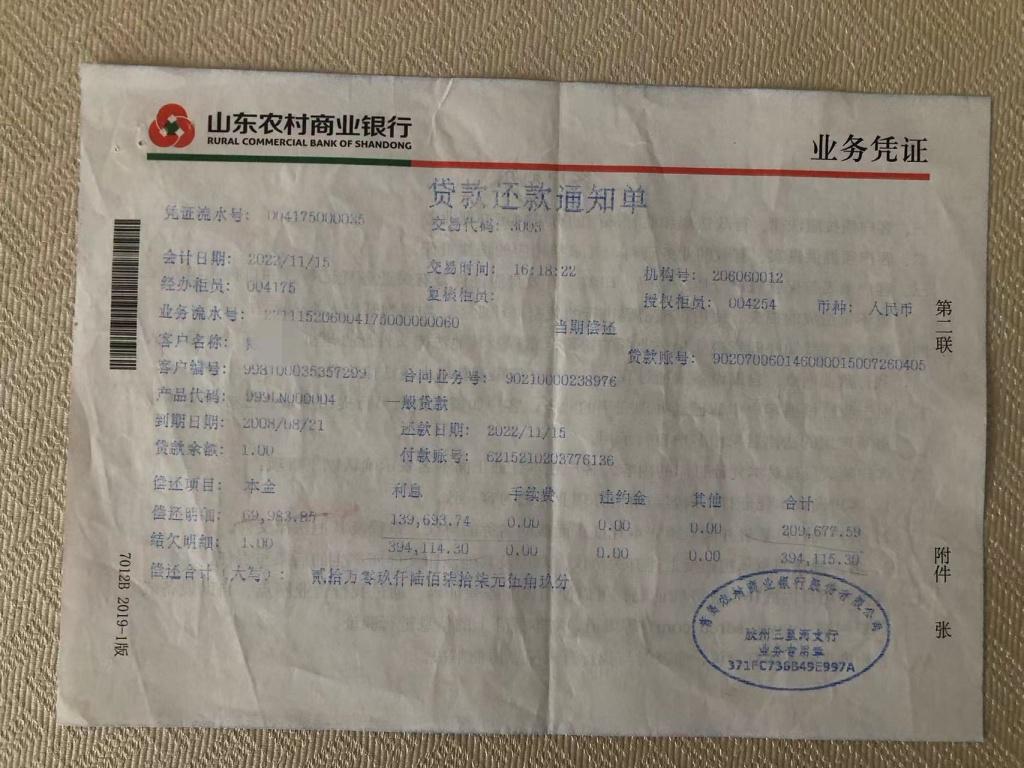 山东农村商业银行
RURAL COMMERCIAL BANK OF SHANDONG
业务凭证
贷款还款通知单
凭证流水号: 004175000035 交易代码: 3003
会计日期: 2022/11/15 交易时间: 16:18:22 机构号: 206060012
经办柜员: 004175 复核柜员: 授权柜员: 004254 币种: 人民币
业务流水号: 221115206004175000000060 当期偿还
客户名称: 贷款账号: 9020700601460000015007260405
客户编号: 998100035357299 合同业务号: 90210000238976
产品代码: 999LN000004 一般贷款
到期日期: 2008/08/21 还款日期: 2022/11/15
贷款余额: 1.00 付款账号: 6215210203776136
偿还项目: 本金 利息 手续费 违约金 其他 合计
偿还明细: 69,983.85 139,693.74 0.00 0.00 0.00 209,677.59
结欠明细: 1.00 394,114.30 0.00 0.00 0.00 394,115.30
偿还合计(大写): 贰拾万零玖仟陆佰柒拾柒元伍角玖分
农村商业银行股份有限公司
胶州三里河支行
业务专用章
371FC736B49E997A
第二联
附件 张
7012B 2019-1版